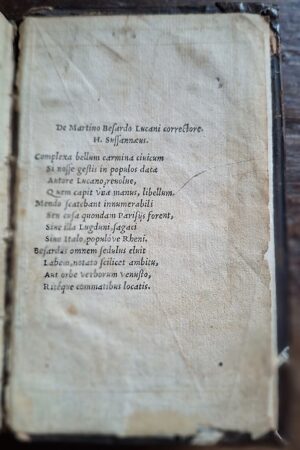 De Martino Besardo Lucani correctore.
H. Sussannæus.
Complexa bellum carmina ciuicum
Si nosse gestis in populos data
Autore Lucano, reuolue,
Quem capit vna manus, libellum.
Mendo scatebant innumerabili
Seu cusa quondam Parisijs forent,
Siue illa Lugduni, sagaci
Siue Italo, populóve Rheni.
Besardus omnem sedulus eluit
Labem, notato scilicet ambitu,
Aut orbe verborum venusto,
Ritéque commatibus locatis.